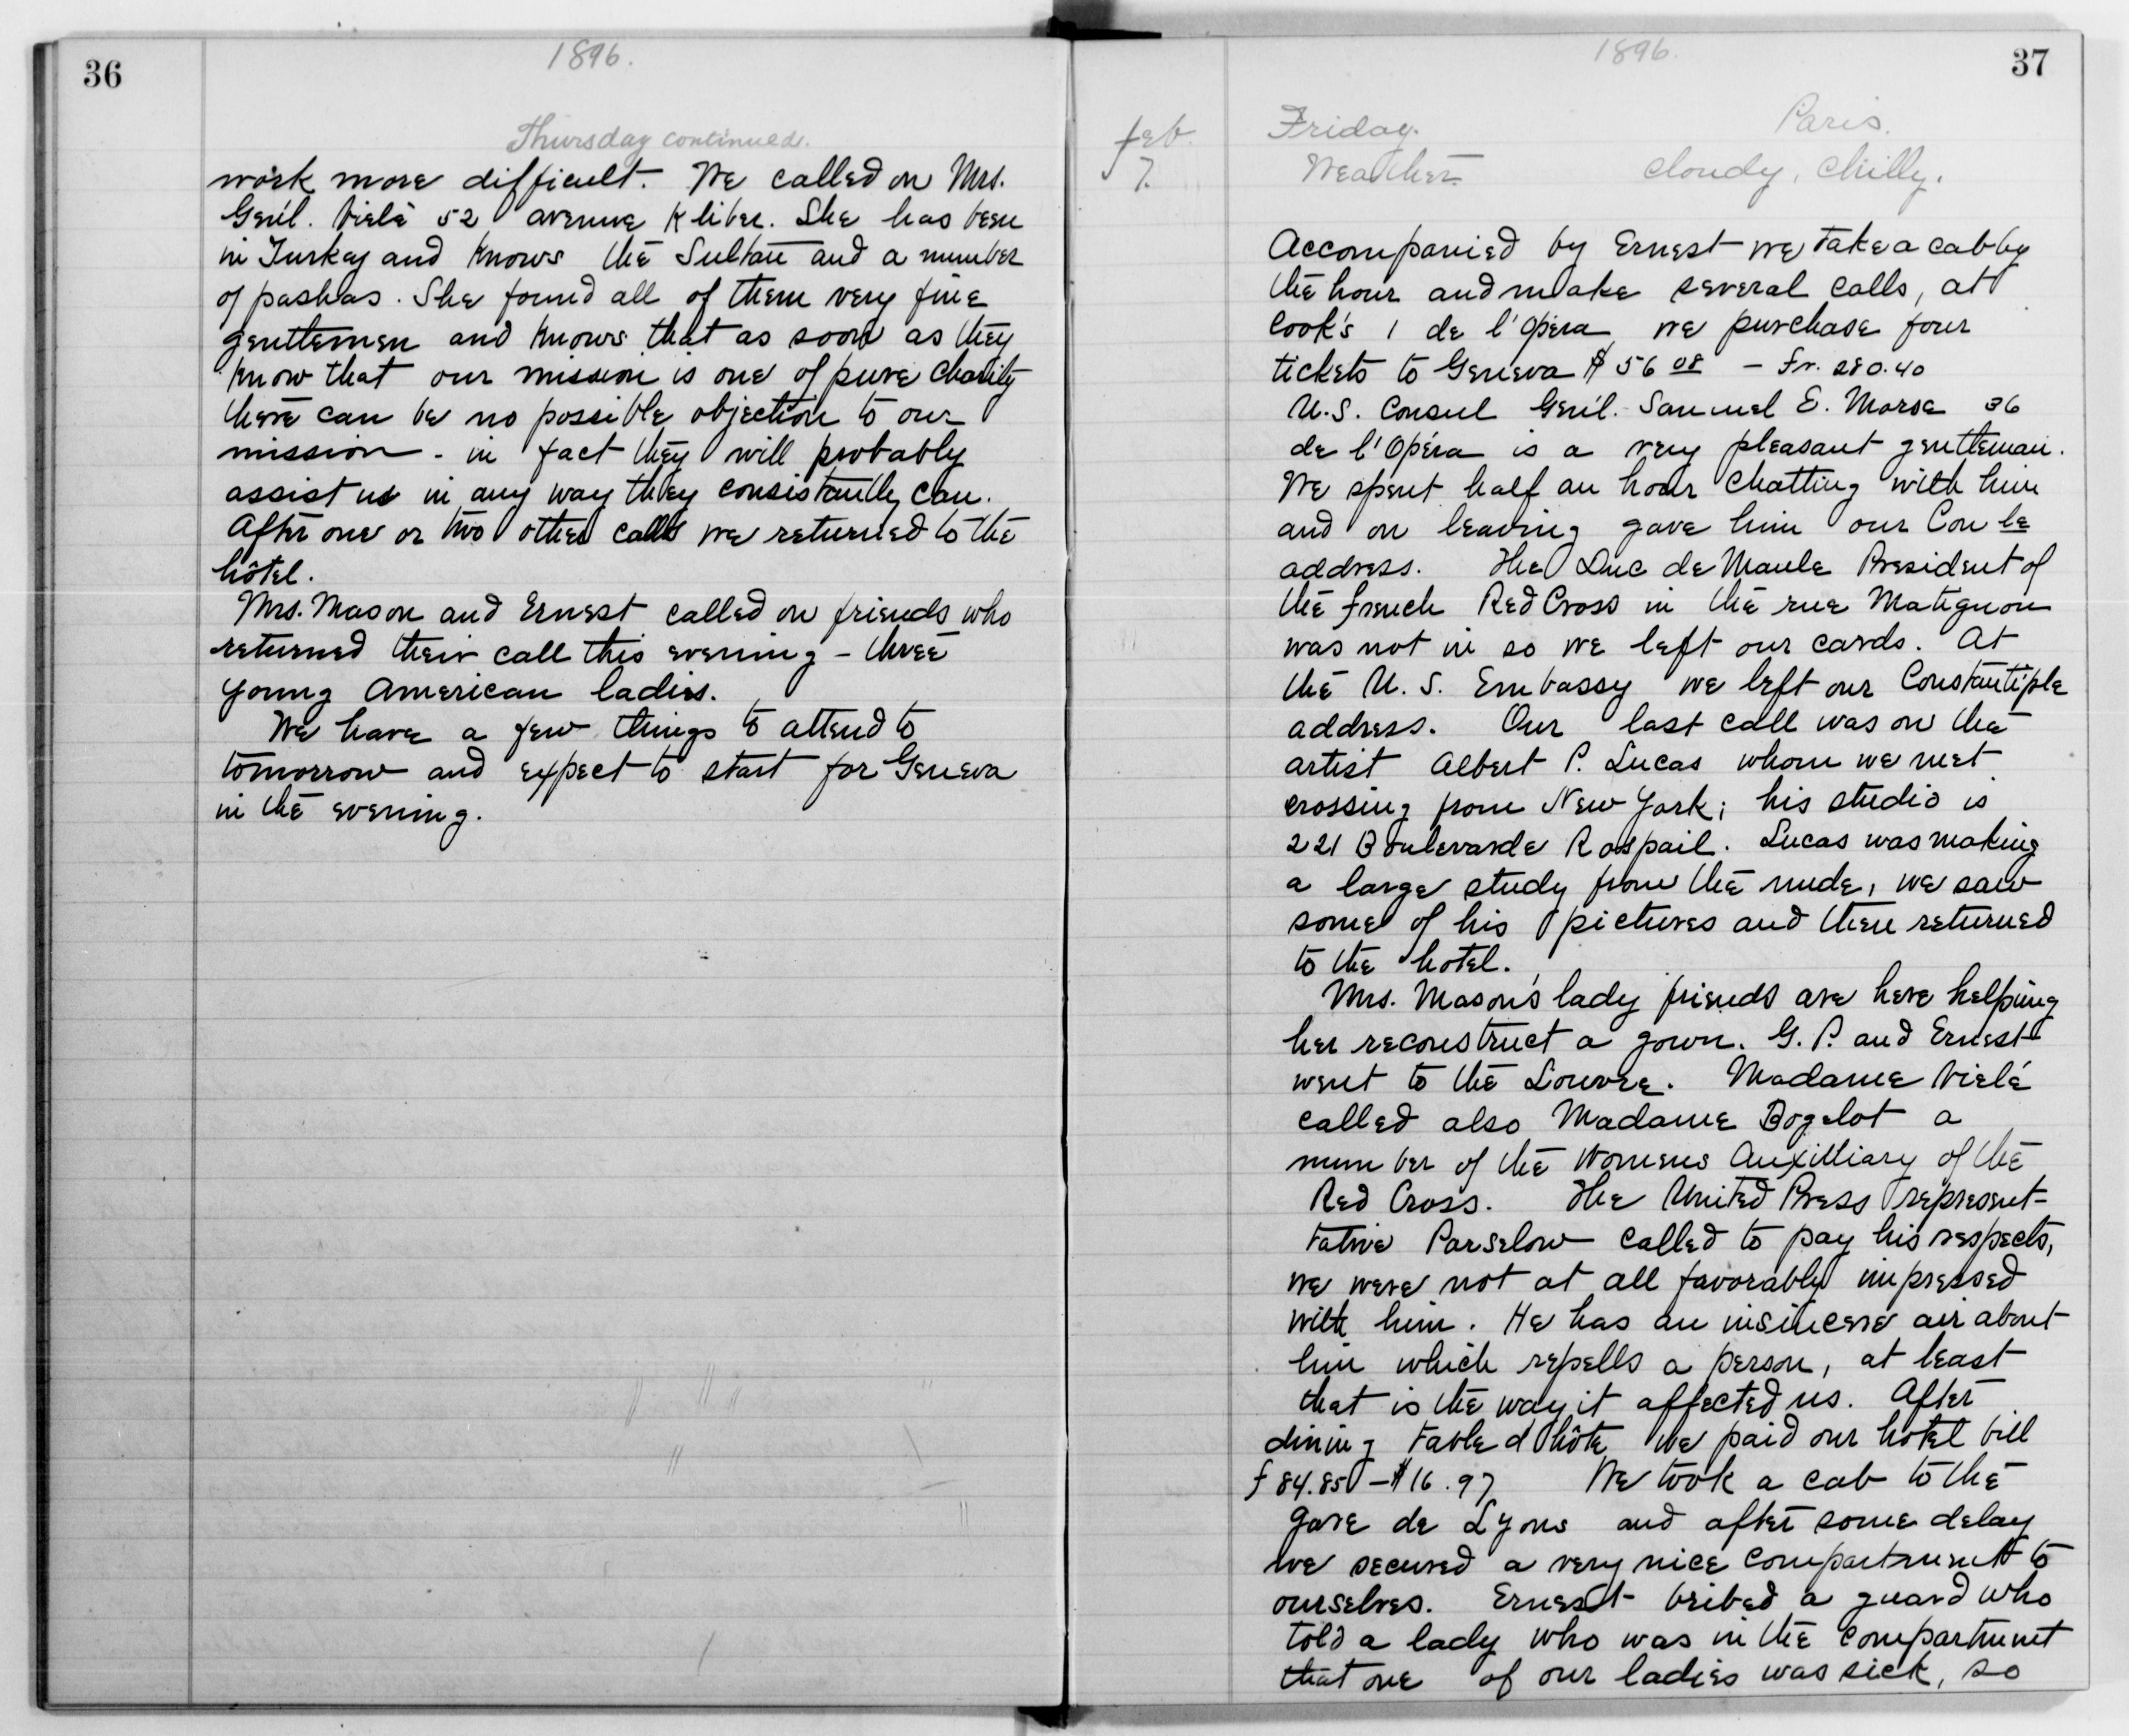 36
1896.
Thursday continued.
work more difficult. We called on Mrs.
Gen'l. Vielé 52 avenue Kliber. She has been
in Turkey and knows the Sultan and a number
of pashas. She found all of them very fine
gentlemen and knows that as soon as they
know that our mission is one of pure charity
there can be no possible objection to our
mission - in fact they will probably
assist us in any way they consistantly can.
After one or two other calls we returned to the
hôtel.
Mrs. Mason and Ernest called on friends who
returned their call this evening - three
young American ladies.
We have a few things to attend to
tomorrow and expect to start for Geneva
in the evening.
1896.
37
Feb. Friday. Paris.
7. Weather cloudy, chilly.
Accompanied by Ernest we take a cab by
the hour and make several calls, at
Cook's 1 de l'Opéra we purchase four
tickets to Geneva $56 08 - Fr. 280.40
U.S. Consul Gen'l. Samuel E. Morse 36
de l'Opéra is a very pleasant gentleman.
We spent half an hour chatting with him
and on leaving gave him our Con le
address. The Duc de Maule President of
the french Red Cross in the rue Matignon
was not in so we left our cards. At
the U.S. Embassy we left our Constantiple
address. Our last call was on the
artist Albert P. Lucas whom we met
crossing from New York; his studio is
221 Boulevarde Raspail. Lucas was making
a large study from the nude, we saw
some of his pictures and then returned
to the hotel.
Mrs. Mason's lady friends are here helping
her reconstruct a gown. G. P. and Ernest
went to the Louvre. Madame Vielé
called also Madame Bogelot a
number of the Womens Auxilliary of the
Red Cross. The United Press represent-
tative Parselow called to pay his respects,
we were not at all favorably impressed
with him. He has an insincere air about
him which repells a person, at least
that is the way it affected us. After
dining table d hôte we paid our hotel bill
f 84.85 - $16.97 We took a cab to the
gare de Lyons and after some delay
we secured a very nice compartment to
ourselves. Ernest bribed a guard who
told a lady who was in the compartment
that one of our ladies was sick, so